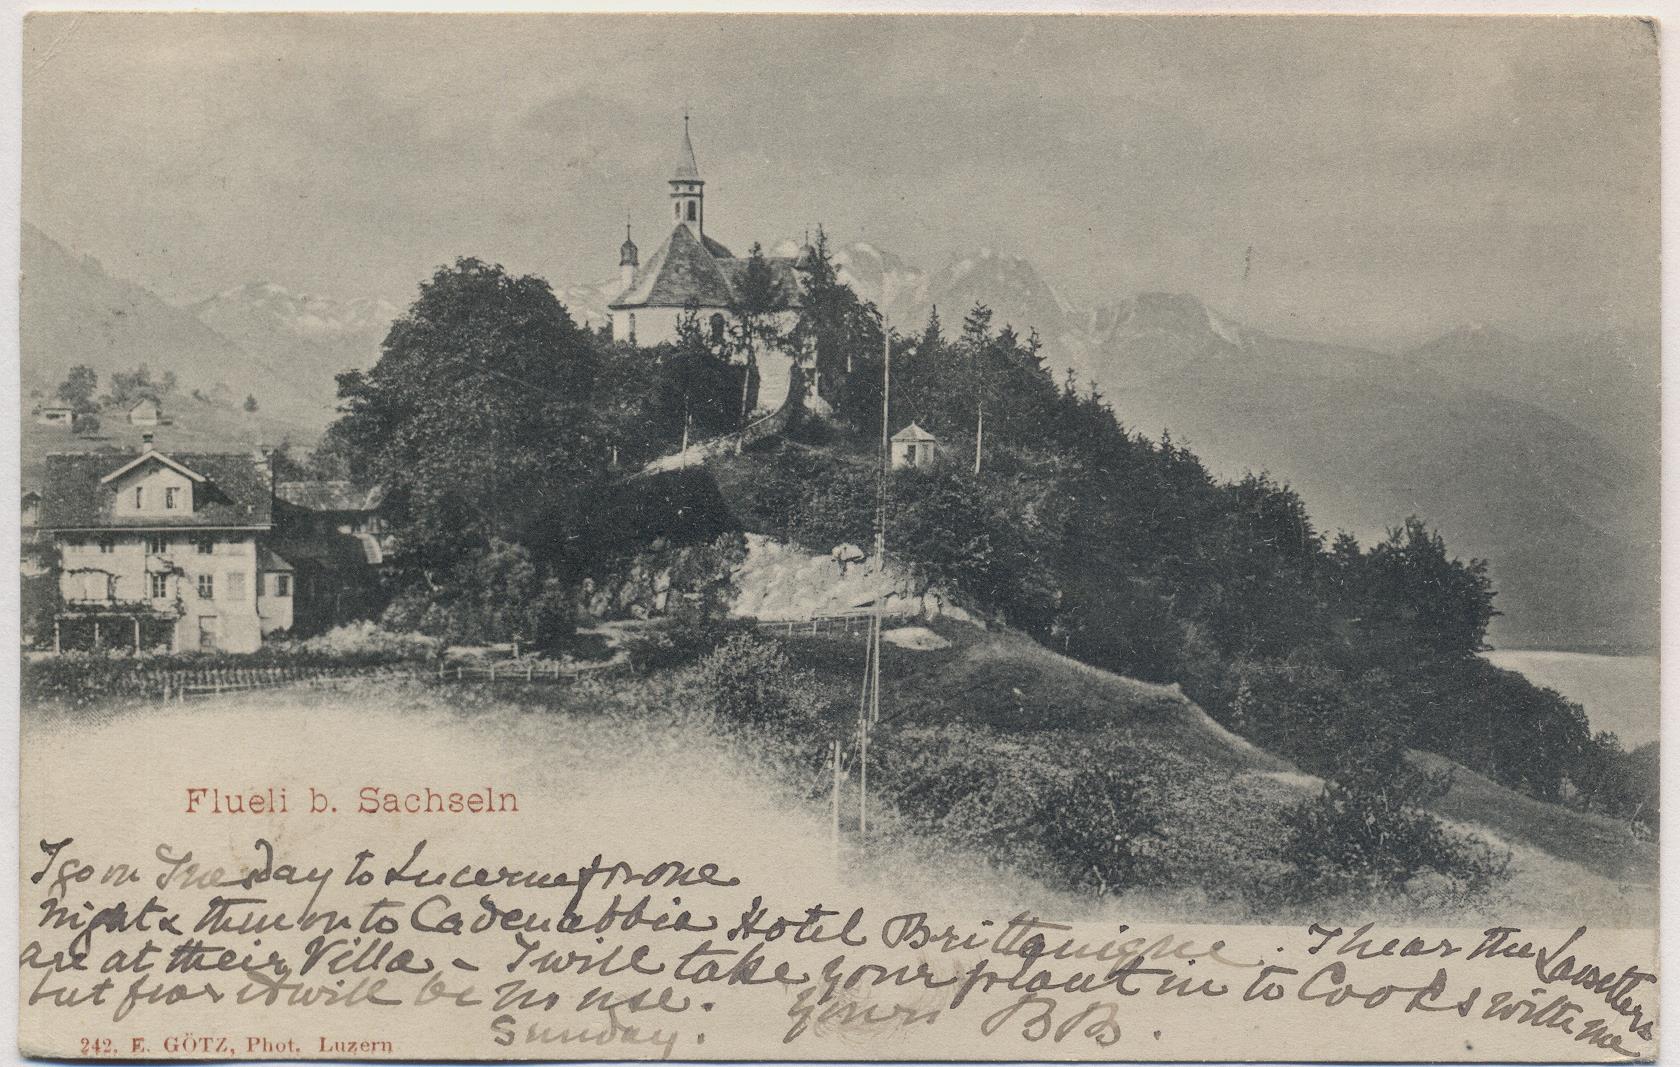 Flueli b. Sachseln
I go on Tuesday to Lucerne for one
night & then on to Cadenabbia Hotel Brittanique. I hear the Lassetters
are at their Villa - I will take your plaut in to Cooks with me
but fear it will be no use. yours BB.
Sunday.
242. E. GÖTZ, Phot. Luzern